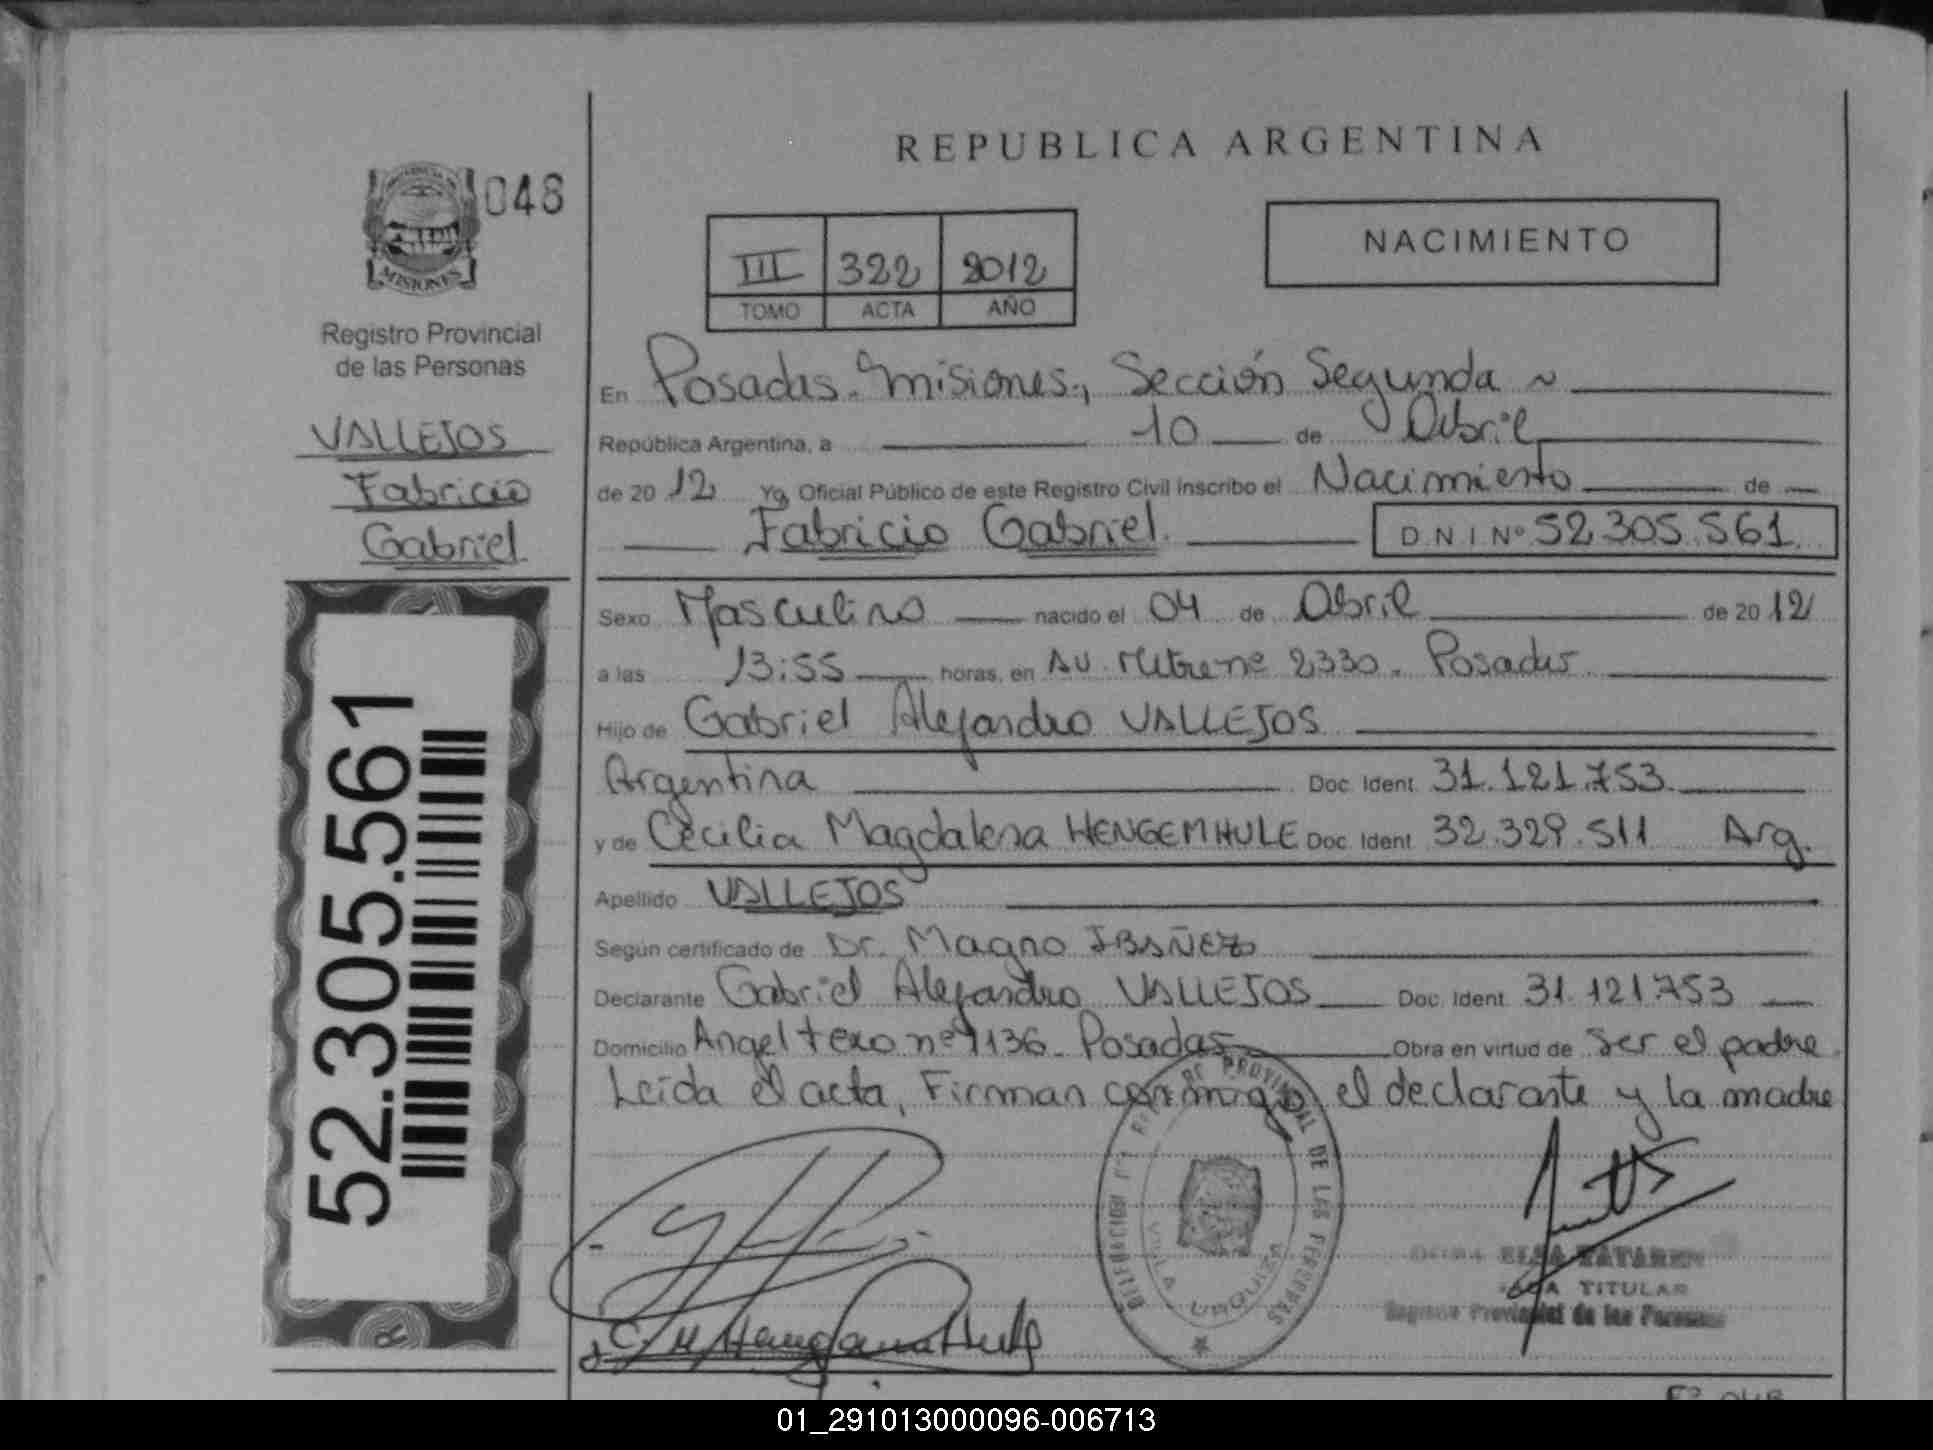 REPUBLICA ARGENTINA
048
MISIONES
Registro Provincial
de las Personas
VALLEJOS
Fabricio
Gabriel
52.305.561
III 322 2012
TOMO ACTA AÑO
NACIMIENTO
En Posadas. Misiones., Sección Segunda
República Argentina, a 10 de Abril
de 20 12 Yo, Oficial Público de este Registro Civil inscribo el Nacimiento de
Fabricio Gabriel DNI Nº 52.305.561
Sexo Masculino nacido el 04 de Abril de 20 12
a las 13:55 horas, en Av. Mitre nº 2330. Posadas
Hijo de Gabriel Alejandro VALLEJOS
Argentina Doc. Ident. 31.121.753
y de Cecilia Magdalena HENGEMHULE Doc. Ident. 32.329.511 Arg.
Apellido VALLEJOS
Según certificado de Dr. Magno IBAÑEZ
Declarante Gabriel Alejandro VALLEJOS Doc. Ident. 31.121.753
Domicilio Angel nº 1136. Posadas Obra en virtud de Ser el padre.
Leida el acta, Firman conmigo el declarante y la madre
PROVINCIAL DE LAS PERSONAS
VILLA URQUIZA
TITULAR
Registro Provincial de las Personas
01_291013000096-006713